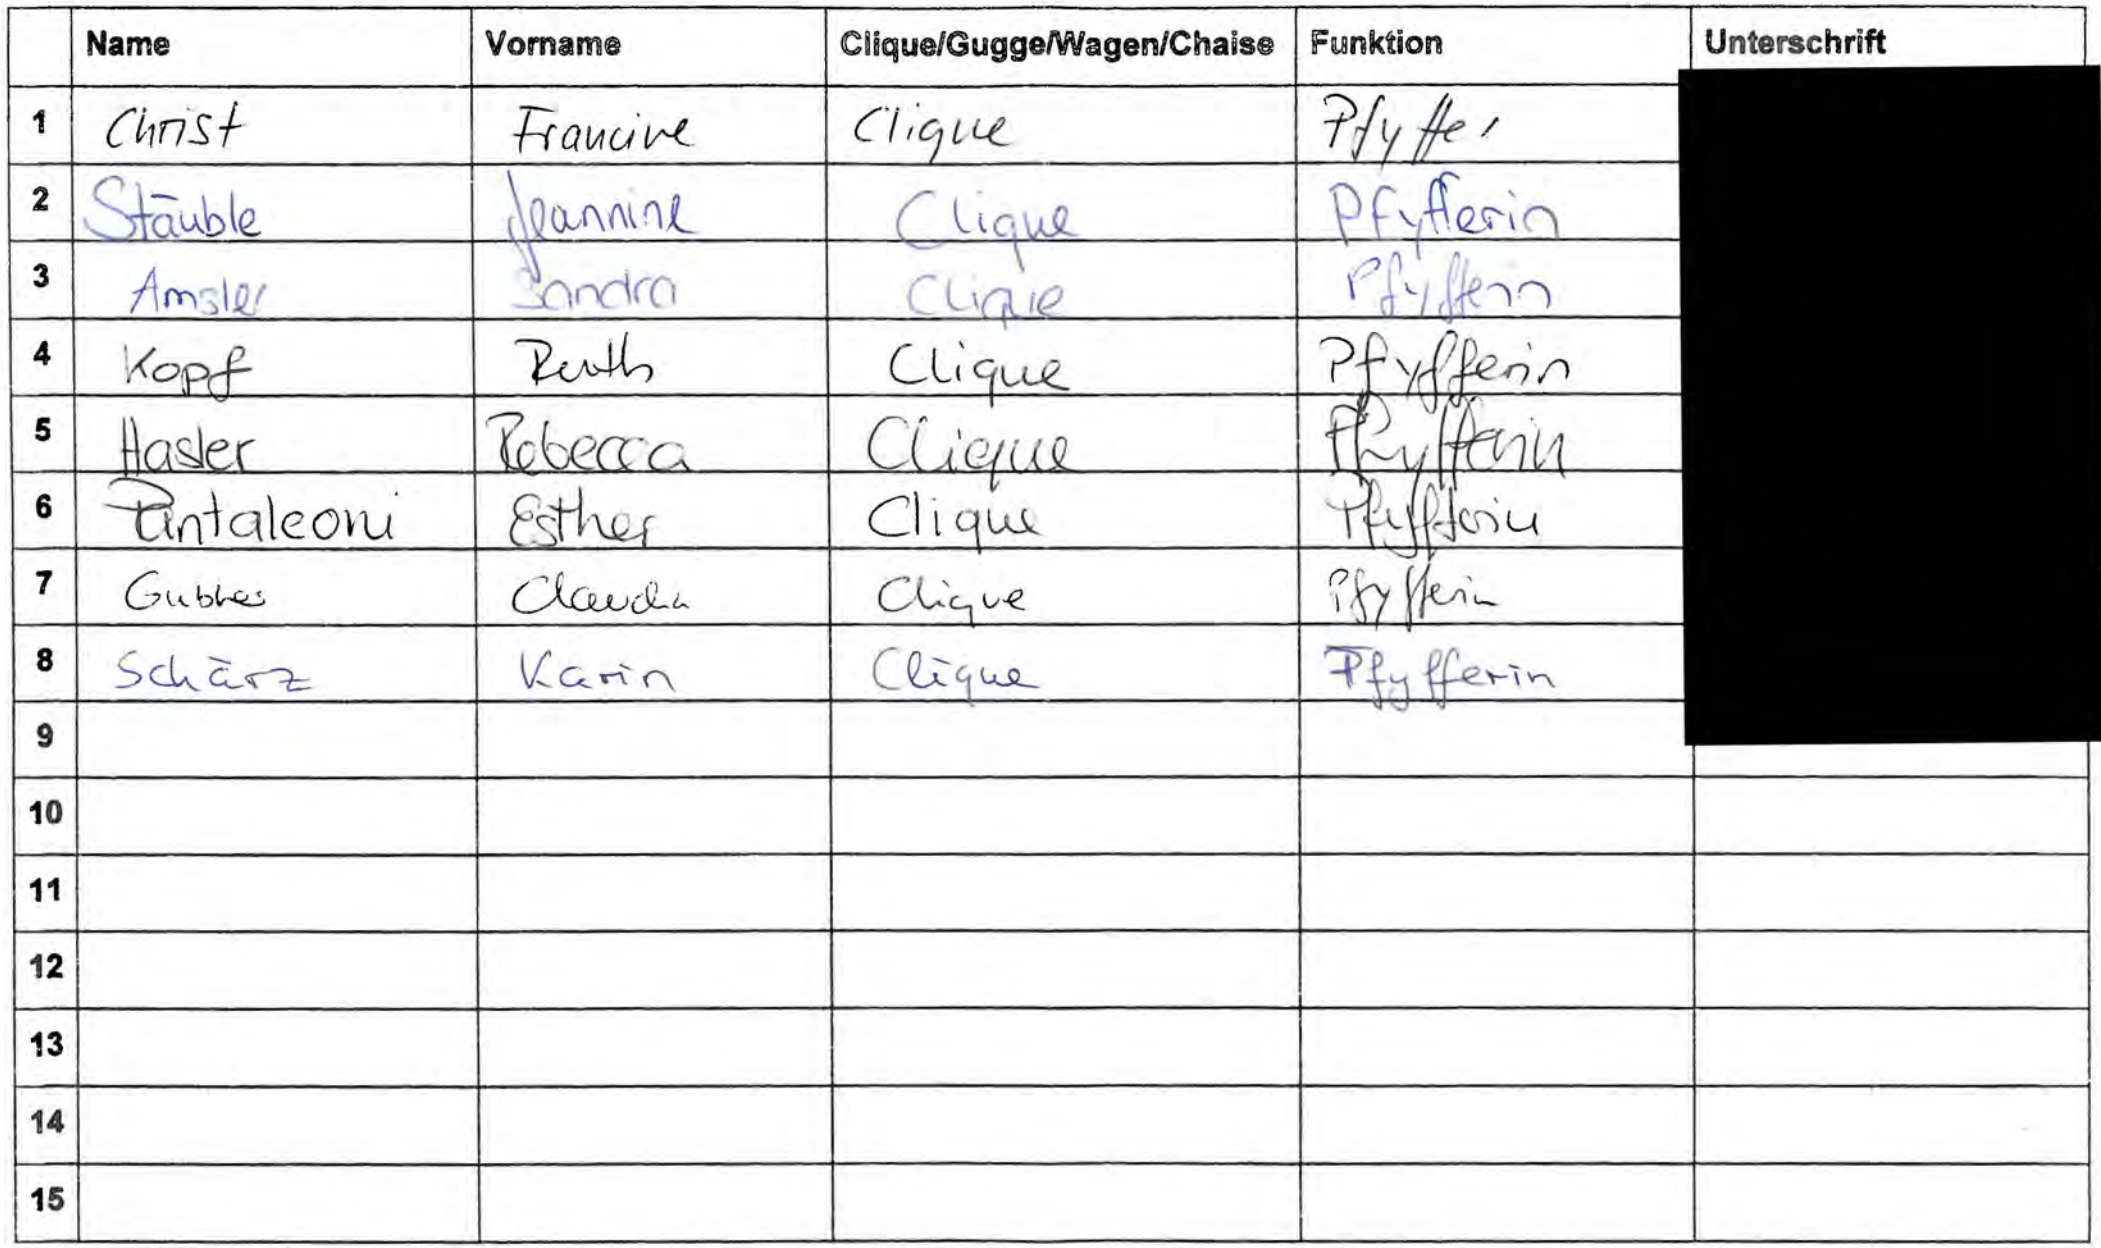 Name Vorname Clique/Gugge/Wagen/Chaise Funktion Unterschrift
1 Christ Francine Clique Pfyffer
2 Stäuble Jeannine Clique Pfyfferin
3 Amsler Sandra Clique Pfyfferin
4 Kopf Ruth Clique Pfyfferin
5 Hasler Rebecca Clique Pfyfferin
6 Pantaleoni Esther Clique Pfyfferin
7 Claudia Clique Pfyfferin
8 Schärz Karin Clique Pfyfferin
9
10
11
12
13
14
15